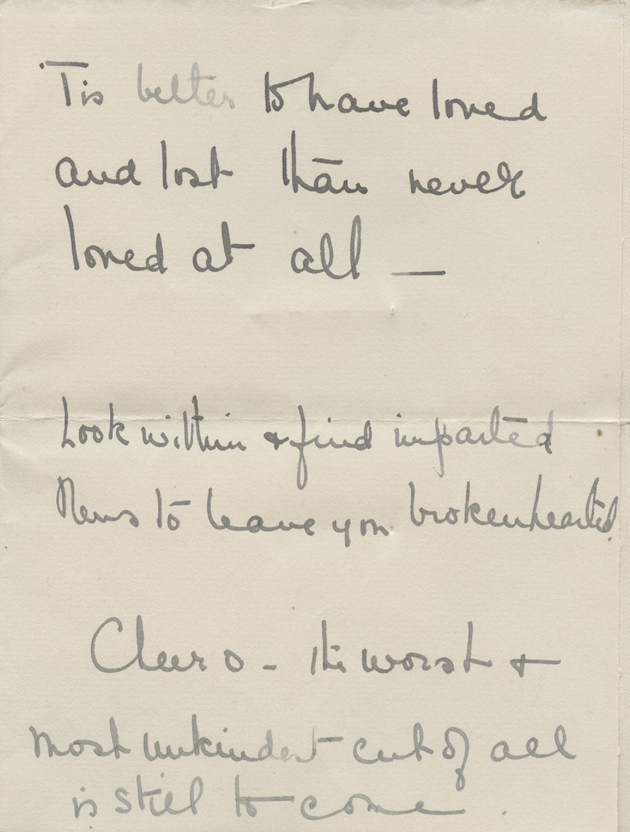 'Tis better to have loved
and lost than never
loved at all —
Look within & find imparted
News to leave you brokenhearted.
Cheer o - the worst &
most unkindest cut of all
is still to come.